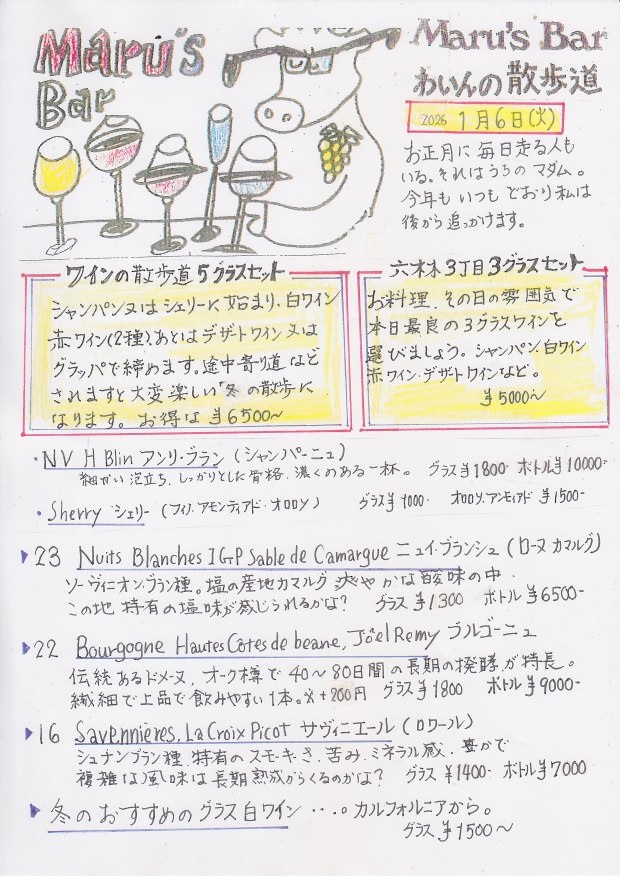 Maru's
Bar
Maru's Bar
わいんの散歩道
2026 1月6日(火)
お正月に毎日走る人も
いる。それはうちのマダム。
今年もいつもどおり私は
後から追っかけます。
ワインの散歩道5グラスセット
シャンパン又はシェリーに始まり、白ワイン
赤ワイン(2種)、あとはデザートワイン又は
グラッパで締めます。途中寄り道など
されますと大変楽しい「冬の散歩に
なります。お得な ¥6500〜
六本木3丁目3グラスセット
お料理、その日の雰囲気で
本日最良の3グラスワインを
選びましょう。シャンパン、白ワイン
赤ワイン・デザートワインなど。
¥5000〜
・NV H Blin アンリ・ブラン (シャンパーニュ)
細かい泡立ち、しっかりとした骨格、濃くのある一杯。 グラス¥1800- ボトル¥10000-
・Sherry シェリー (フィノ、アモンティアド・オロロソ) グラス¥1000- オロロソ、アンモティアド ¥1500-
23 Nuits Blanches IGP Sable de Camargue ニュイ・ブランシュ (ローヌ カマルグ)
ソーヴィニオン・ブラン種。塩の産地カマルグ 爽やかな酸味の中、
この地 特有の塩味が感じられるかな? グラス¥1300 ボトル¥6500-
22 Bourgogne Hautes Côtes de beane, Joël Remy ブルゴーニュ
伝統あるドメーヌ、オーク樽で40〜80日間の長期の発酵が特長。
繊細で上品で飲みやすい1本。※+200円 グラス¥1800 ボトル¥9000-
16 Savennières, La Croix Picot サヴィニエール (ロワール)
シュナンブラン種、特有のスモーキーさ、苦み、ミネラル感、豊かで
複雑な風味は長期熟成からくるのかな? グラス ¥1400- ボトル¥7000
冬のおすすめのグラス白ワイン ・・・。カルフォルニアから。
グラス¥1500〜